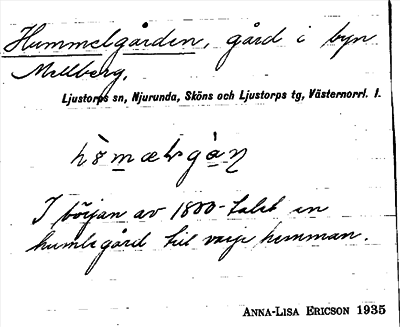 Hummelgården, gård i byn
Mellberg.
Ljustorps sn, Njurunda, Sköns och Ljustorps tg, Västernorrl. l.
I början av 1800-talet en
humlegård till varje hemman.
ANNA-LISA ERICSON 1935